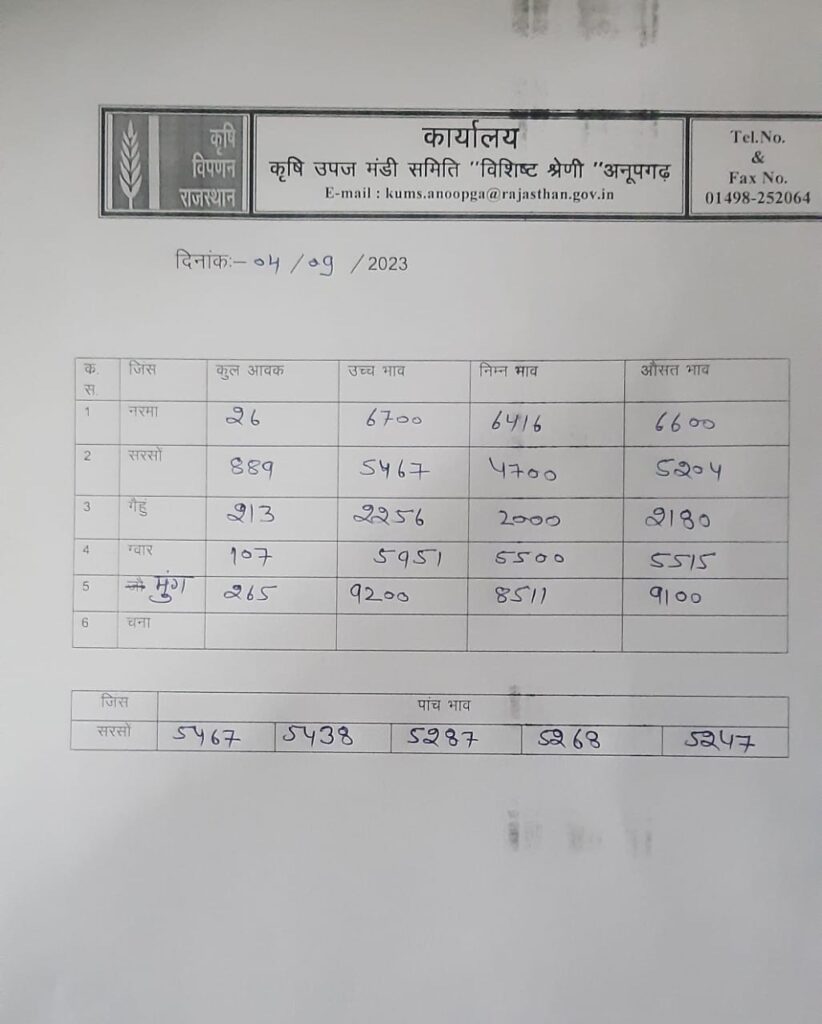 कृषि
विपणन
राजस्थान
कार्यालय
कृषि उपज मंडी समिति "विशिष्ट श्रेणी "अनूपगढ़
E-mail : kums.anoopga@rajasthan.gov.in
Tel.No.
&
Fax No.
01498-252064
दिनांकः– 04 / 09 / 2023
क.स. जिस कुल आवक उच्च भाव निम्न भाव औसत भाव
1 नरमा 26 6700 6416 6600
2 सरसों 889 5467 4700 5204
3 गैहुं 213 2256 2000 2180
4 ग्वार 107 5951 5500 5515
5 जौ मुंग 265 9200 8511 9100
6 चना
जिस पांच भाव
सरसों 5467 5438 5287 5268 5247